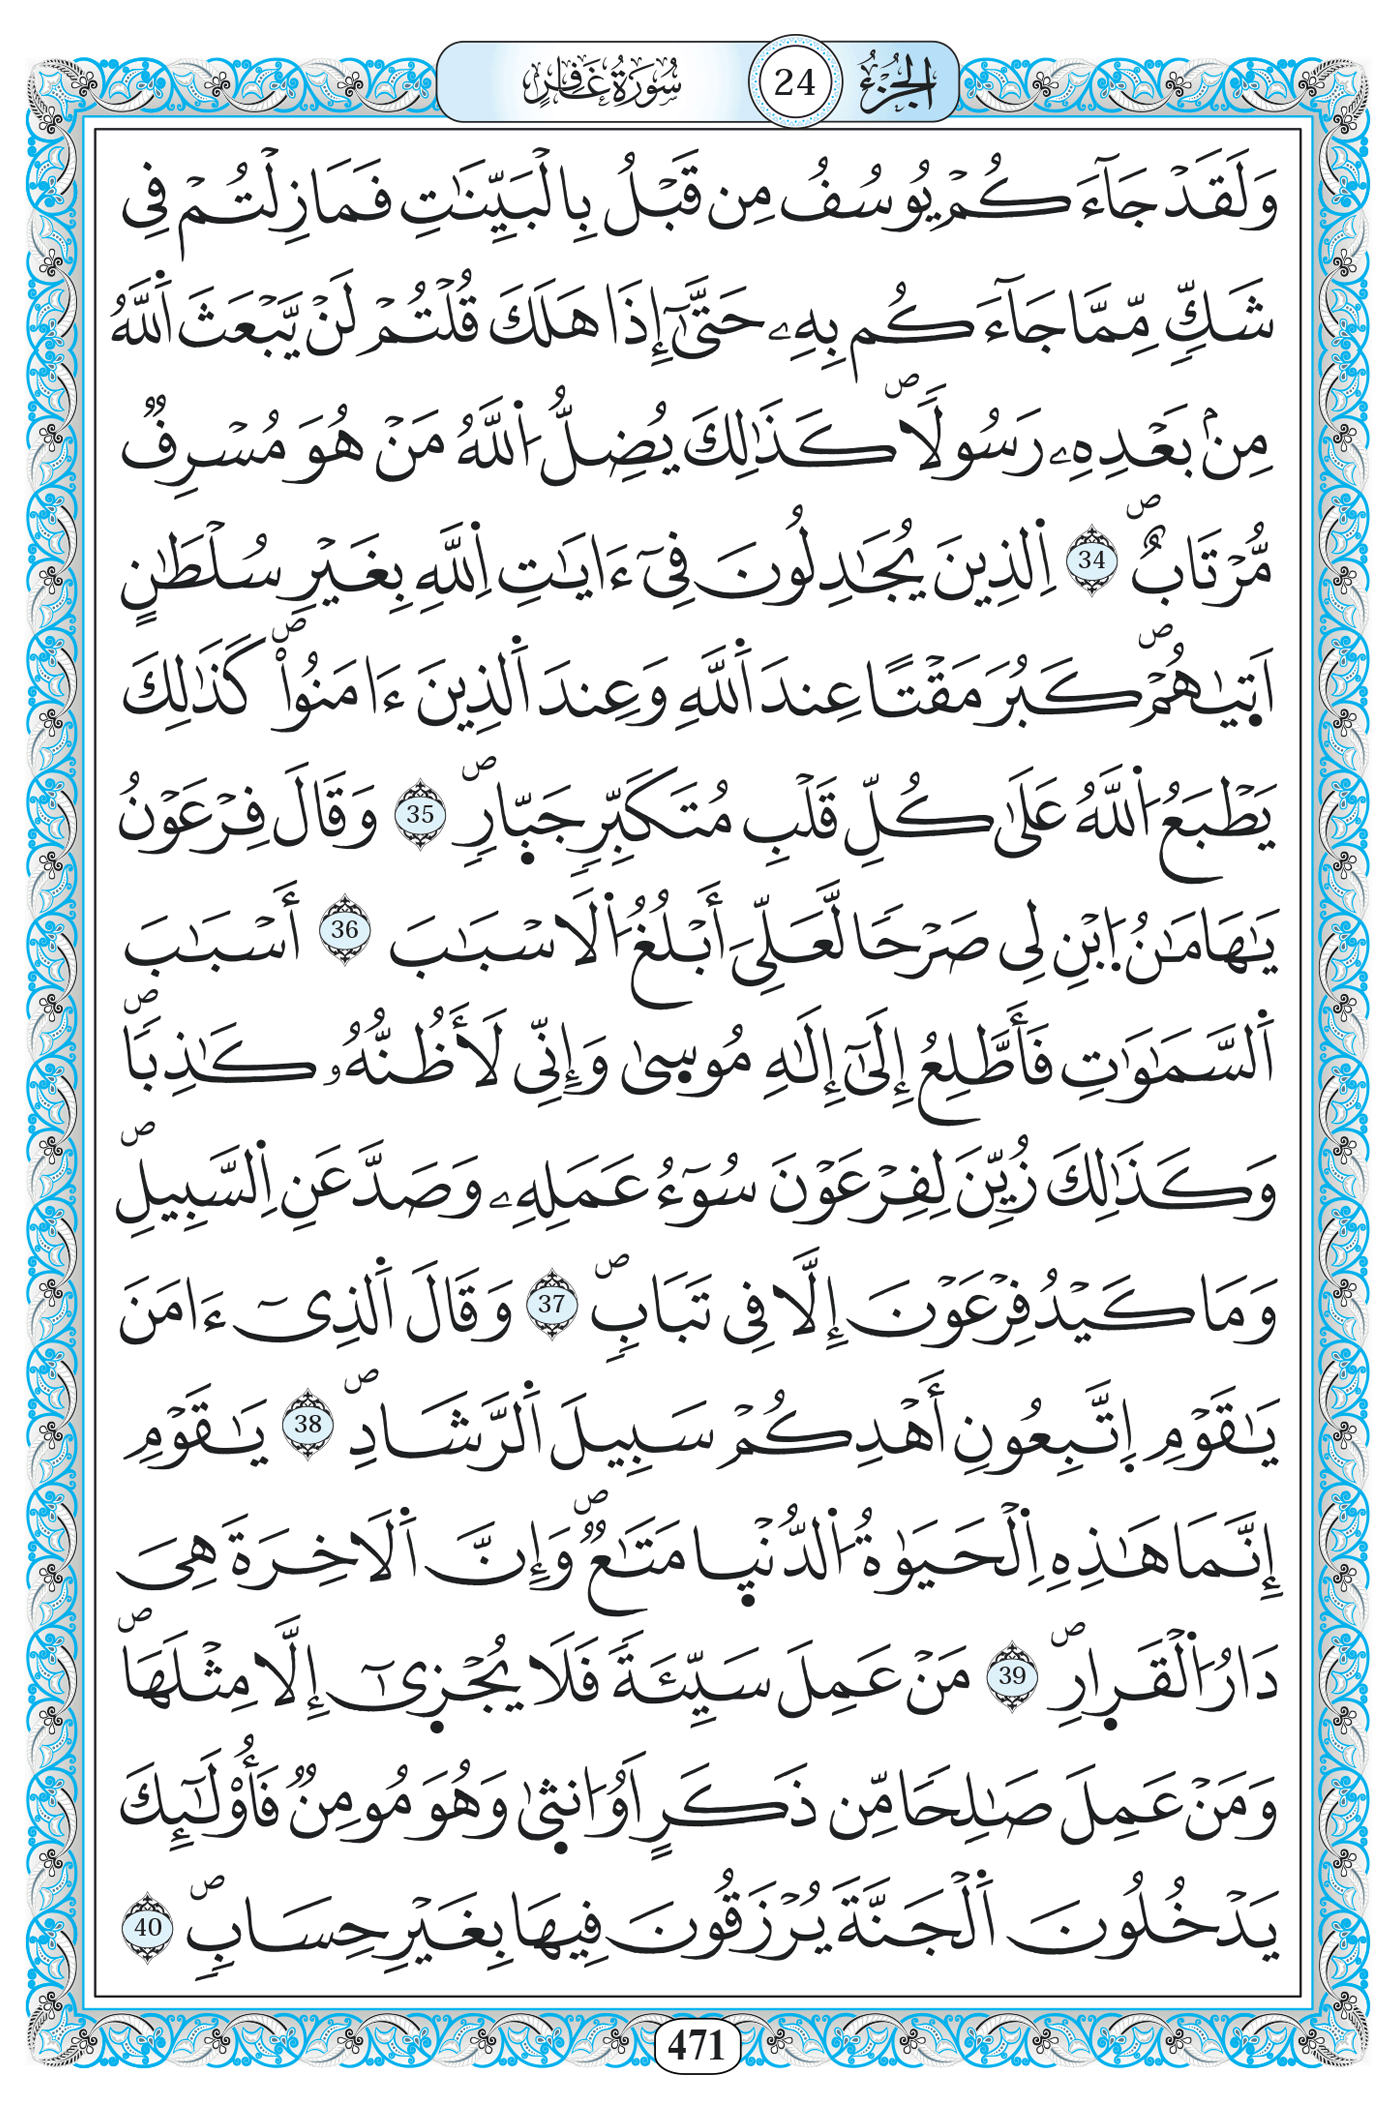 الجُزْءُ 24 سُورَةُ غَافِرٍ
وَلَقَدْ جَآءَكُمْ يُوسُفُ مِن قَبْلُ بِالْبَيِّنَٰتِ فَمَا زِلْتُمْ فِى
شَكٍّ مِّمَّا جَآءَكُم بِهِۦ حَتَّىٰٓ إِذَا هَلَكَ قُلْتُمْ لَنْ يَّبْعَثَ اَ۬للَّهُ
مِنۢ بَعْدِهِۦ رَسُولاٗۖ كَذَٰلِكَ يُضِلُّ اُ۬للَّهُ مَنْ هُوَ مُسْرِفٞ
مُّرْتَابٌۖ 34 اِ۬لذِينَ يُجَٰدِلُونَ فِىٓ ءَايَٰتِ اِ۬للَّهِ بِغَيْرِ سُلْطَٰنٍ
اَتۭيٰهُمْۖ كَبُرَ مَقْتًا عِندَ اَ۬للَّهِ وَعِندَ اَ۬لذِينَ ءَامَنُواْۖ كَذَٰلِكَ
يَطْبَعُ اُ۬للَّهُ عَلَىٰ كُلِّ قَلْبِ مُتَكَبِّرٖ جَبّ۪ارٖۖ 35 وَقَالَ فِرْعَوْنُ
يَٰهَامَٰنُ اُ۪بْنِ لِى صَرْحاٗ لَّعَلِّىَ أَبْلُغُ اُ۬لَاسْبَٰبَ 36 أَسْبَٰبَ
اَ۬لسَّمَٰوَٰتِ فَأَطَّلِعُ إِلَىٰٓ إِلَٰهِ مُوس۪ىٰ وَإِنِّى لَأَظُنُّهُۥ كَٰذِباٗۖ
وَكَذَٰلِكَ زُيِّنَ لِفِرْعَوْنَ سُوٓءُ عَمَلِهِۦ وَصَدَّ عَنِ اِ۬لسَّبِيلِۖ
وَمَا كَيْدُ فِرْعَوْنَ إِلَّا فِى تَبَابٖۖ 37 وَقَالَ اَ۬لذِىٓ ءَامَنَ
يَٰقَوْمِ اِ۪تَّبِعُونِ أَهْدِكُمْ سَبِيلَ اَ۬لرَّشَادِۖ 38 يَٰقَوْمِ
إِنَّمَا هَٰذِهِ اِ۬لْحَيَوٰةُ اُ۬لدُّنْي۪ا مَتَٰعٞۖ وَإِنَّ اَ۬لَاخِرَةَ هِىَ
دَارُ اُ۬لْقَر۪ارِۖ 39 مَنْ عَمِلَ سَيِّئَةٗ فَلَا يُجْز۪ىٰٓ إِلَّا مِثْلَهَاۖ
وَمَنْ عَمِلَ صَٰلِحاٗ مِّن ذَكَرٍ اَوُ ا۟نث۪ىٰ وَهُوَ مُومِنٞ فَأُوْلَٰٓئِكَ
يَدْخُلُونَ اَ۬لْجَنَّةَ يُرْزَقُونَ فِيهَا بِغَيْرِ حِسَابٖۖ 40
471